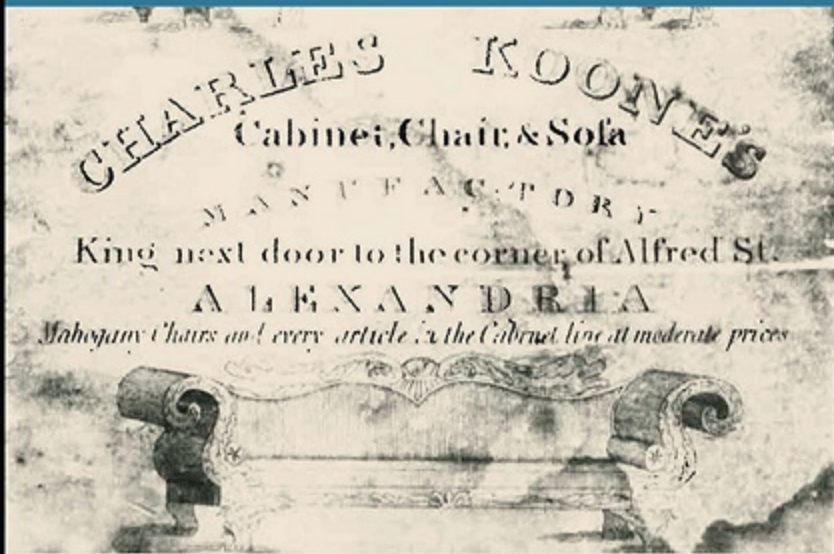 CHARLES KOONE'S
Cabinet, Chair, & Sofa
MANUFACTORY
King next door to the corner of Alfred St.
ALEXANDRIA
Mahogany Chairs and every article in the Cabinet line at moderate prices